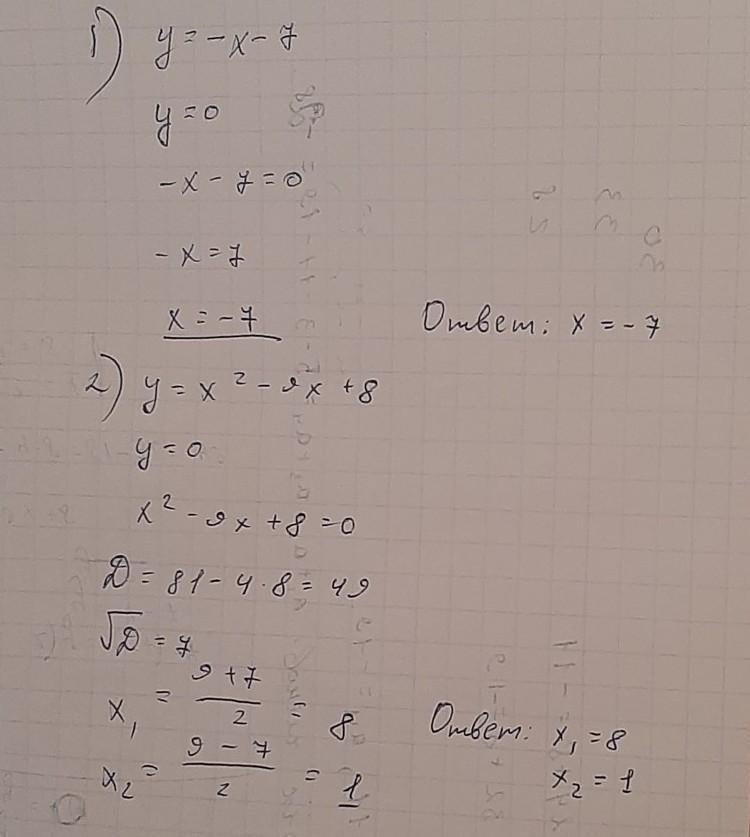 1) y = -x - 7
y = 0
-x - 7 = 0
-x = 7
x = -7
Ответ: x = -7
2) y = x² - 9x + 8
y = 0
x² - 9x + 8 = 0
D = 81 - 4·8 = 49
√D = 7
x₁ = (9 + 7)/2 = 8
x₂ = (9 - 7)/2 = 1
Ответ: x₁ = 8
x₂ = 1